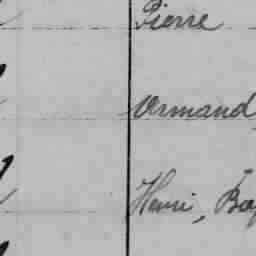 Pierre
Armand
Henri, Bap